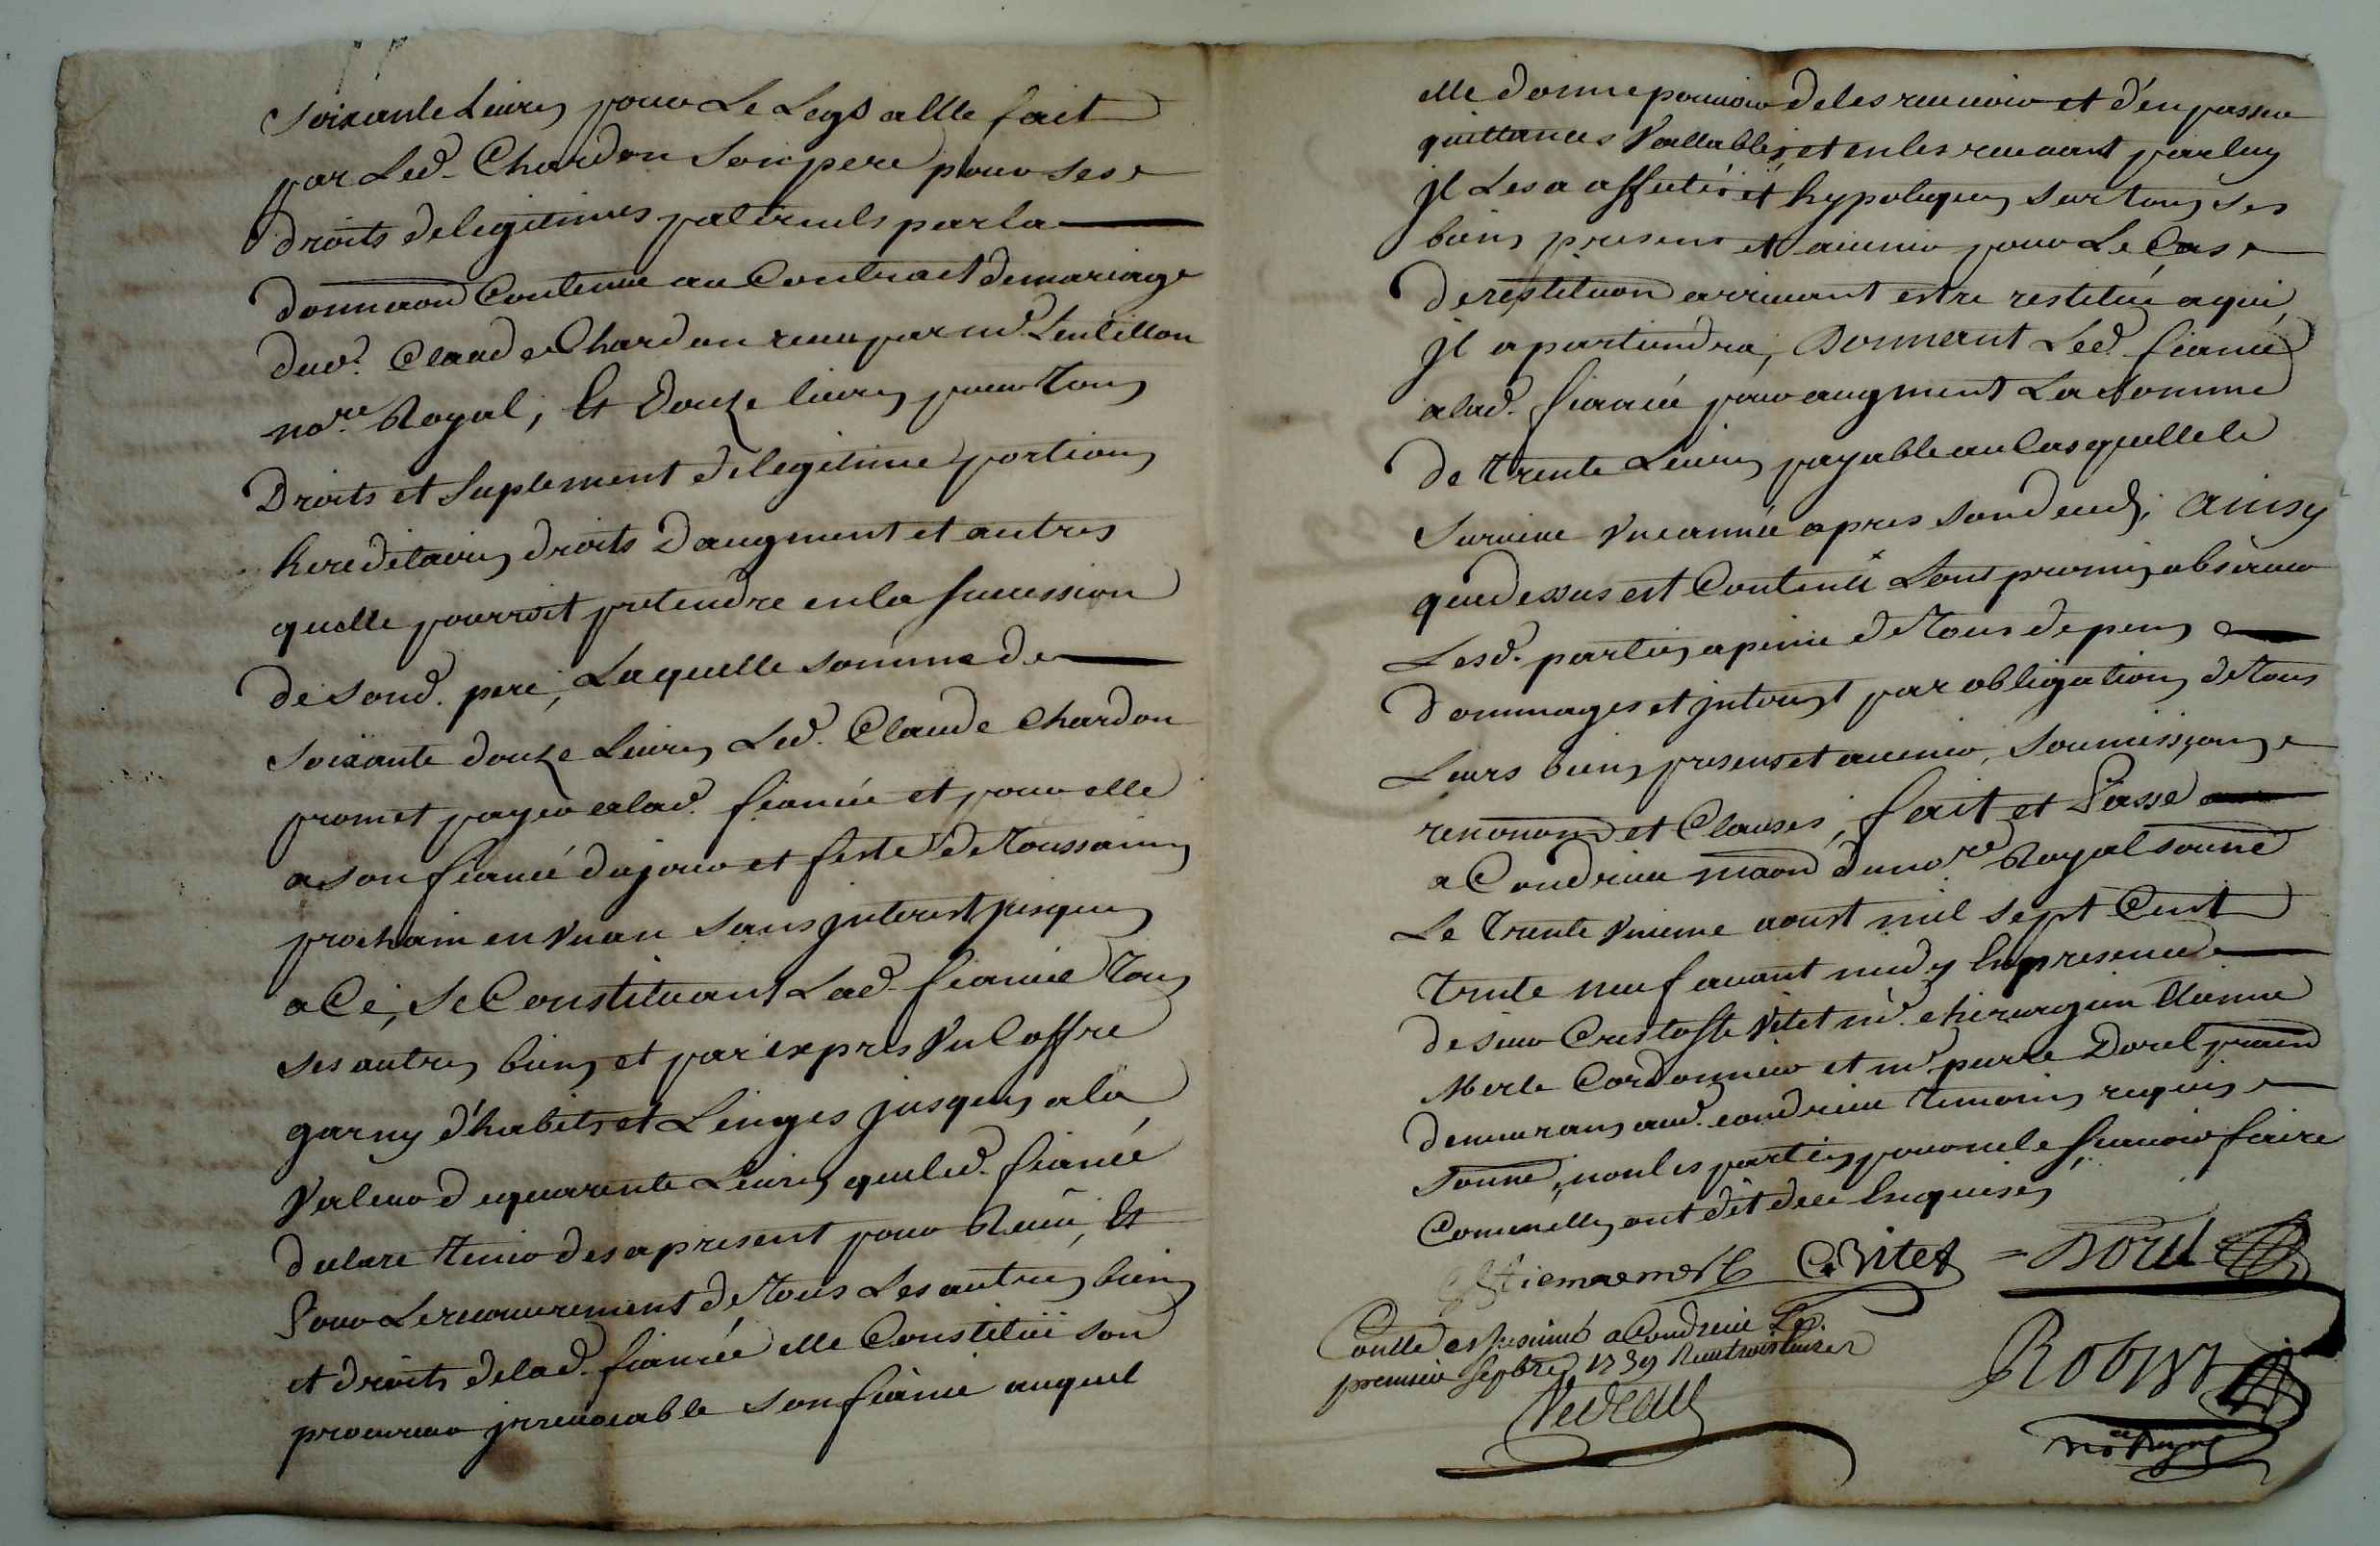 Soixante Livres pour Le Legs a elle fait
par Led. Chardon Son pere pour ses
droits de legitimes paternels par la
donnaon Contenue au Contract de mariage
dud. Claude Chardon receu par me. Lentillon
nore. Royal, Et douze livres pour tous
Droits et Suplement de legitime portions
hereditaires droits d'augment et autres
quelle pourroit pretendre en la succession
de sond. pere, Laquelle somme de
Soixante douze Livres Led. Claude Chardon
promet payer a lad. fiancée et pour elle
a son fiancé du jour et feste de toussaints
prochain en vn an sans jnterest jusques
a Ce, Se Constituant Lad. fiancée tous
ses autres biens et par expres vn Coffre
garny d'habits et Linges jusques a la
valeur de quarante Livres que led. fiancé
declare tenir des a present pour Receu, Et
Pour Le recouvrement de tous Les autres biens
et droits de lad. fiancée elle Constitue son
procureur jrrevocable son fiancé auquel
elle donne pouvoir de les recevoir et d'en passer
quittances vallables, et en les recevant par luy
jl Les a affectés et hypotequés sur tous ses
biens presens et avenir pour Le Cas
de restitution arrivant estre restitué a qui
jl apartiendra, Donnant Led. fiancé
a lad. fiancée pour augment La somme
de trente Livres payable au Cas quelle le
survive vne année apres son deceds, ainsy
que dessus est Contenu L'ont promis observer
Lesd. parties a peine de tous depens
dommages et jnterest par obligations de tous
Leurs biens presens et avenir, soumissions
renonons et Clauses, fait et Passé
a Condrieu maon du nore. Royal soune
Le trente vnieme aoust mil sept Cent
trente neuf avant midy En presence
de sieur Cristofle Vitet me. chirurgien Etienne
Merle Cordonnier et me. pierre Dorel
demeurans aud. condrieu temoins requis
soune, non les parties pour ne le scavoir faire
Comm'elles ont dit de ce Enquises
Etienne merle C. Vitet = Dorel
Conllé et jnsinué a Condrieu Le
premier Sepbre 1739 Receu trois livres
Robin
nore Royal